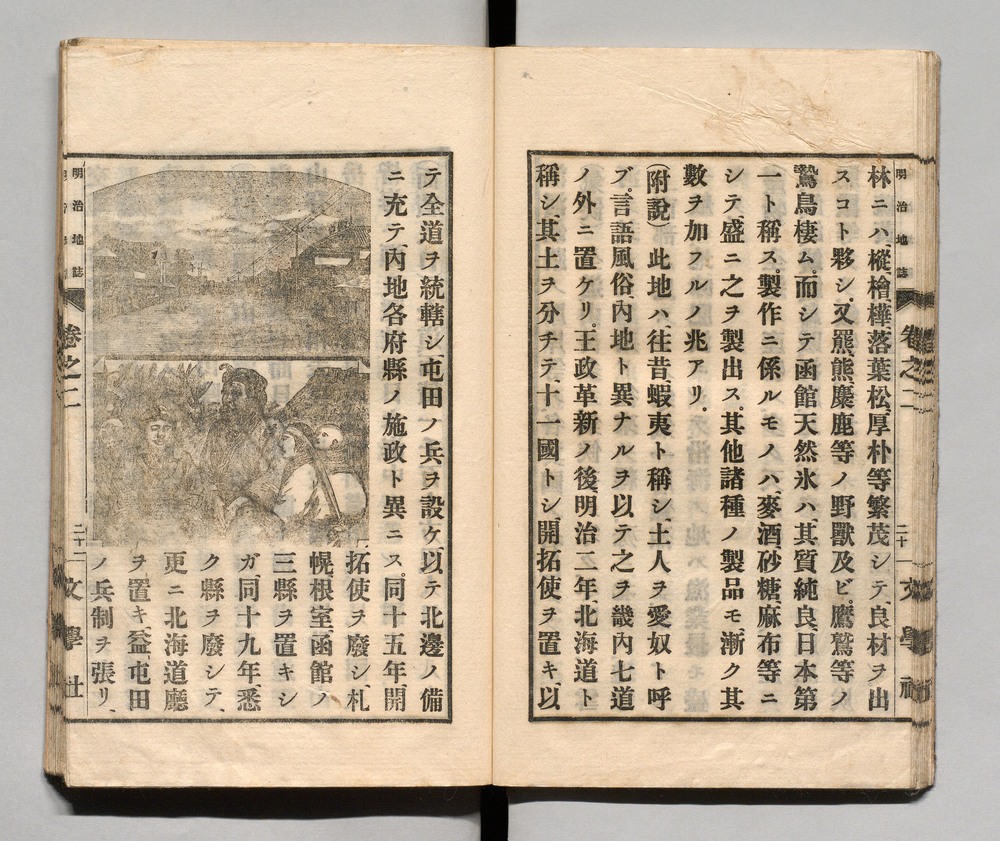 明治地誌 卷之二 二十一 文學社
林ニハ、樅、檜、樺、落葉松、厚朴等繁茂シテ、良材ヲ出
スコト夥シ、又羆、熊、麋鹿等ノ野獸及ビ、鷹鷲等ノ
鷙鳥棲ム。而シテ函館天然氷ハ、其質純良、日本第
一ト稱ス。製作ニ係ルモノハ、麥酒砂糖麻布等ニ
シテ、盛ニ之ヲ製出ス。其他諸種ノ製品モ、漸ク其
數ヲ加フルノ兆アリ。
(附說) 此地ハ、往昔、蝦夷ト稱シ、土人ヲ愛奴ト呼
ブ、言語風俗、內地ト異ナルヲ以テ之ヲ畿內七道
ノ外ニ置ケリ。王政革新ノ後、明治二年北海道ト
稱シ、其土ヲ分チテ、十一國トシ、開拓使ヲ置キ、以
テ全道ヲ統轄シ、屯田ノ兵ヲ設ケ、以テ北邊ノ備
ニ充テ、內地各府縣ノ施政ト異ニス。同十五年、開
拓使ヲ廢シ、札
幌根室函館ノ
三縣ヲ置キシ
ガ、同十九年悉
ク縣ヲ廢シテ、
更ニ北海道廳
ヲ置キ、益、屯田
ノ兵制ヲ張リ、
明治地誌 卷之二 二十二 文學社